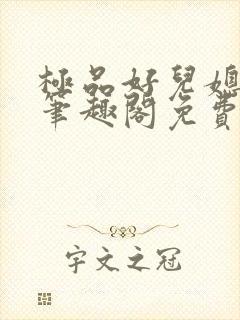 極品好兒媳
筆趣閣免費
宇文之冠